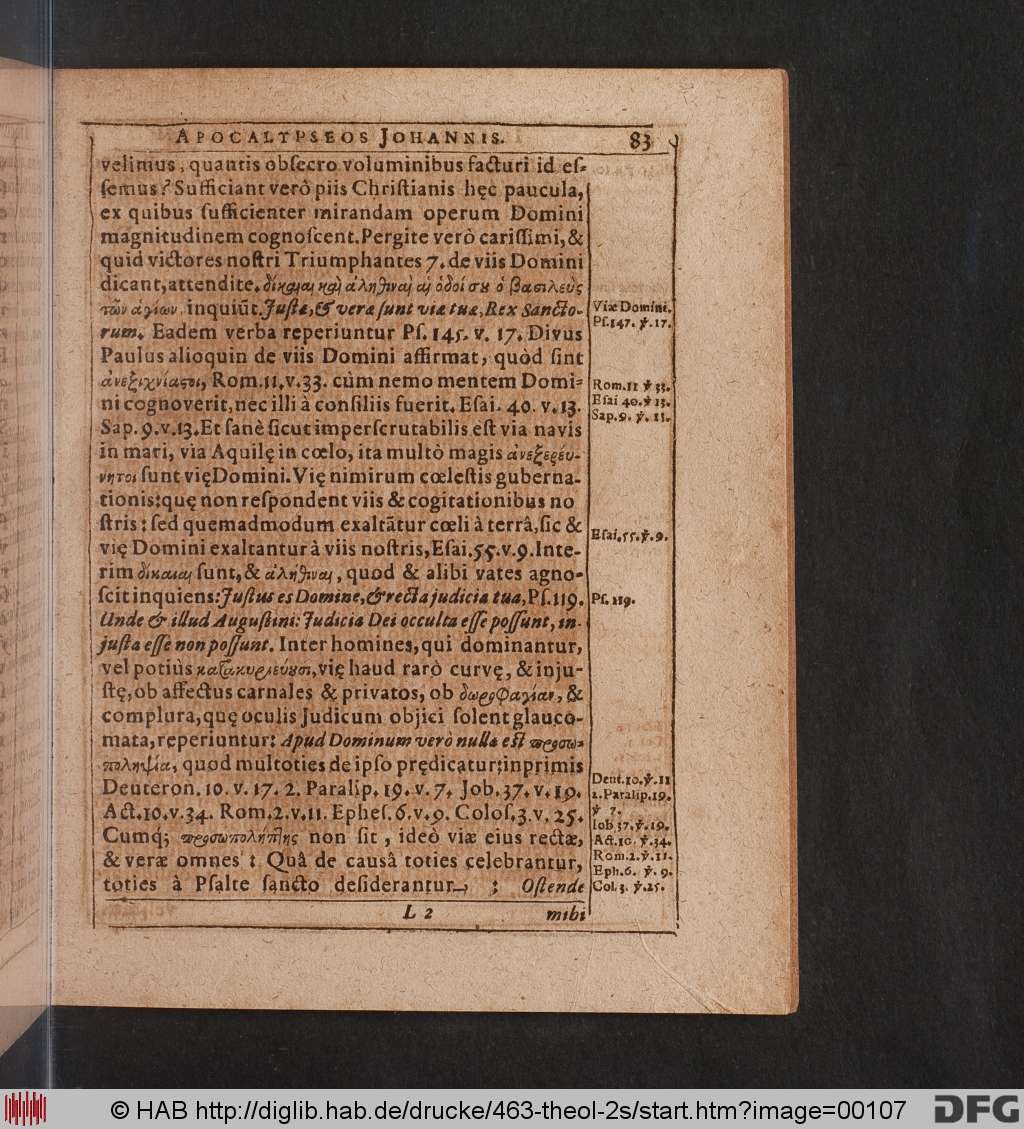 APOCALYPSEOS JOHANNIS. 83
velimus, quantis obsecro voluminibus facturi id es-
semus? Sufficiant verò piis Christianis hęc paucula,
ex quibus sufficienter mirandam operum Domini
magnitudinem cognoscent. Pergite verò carissimi, &
quid victores nostri Triumphantes 7. de viis Domini
dicant, attendite. δίκαιαι καὶ ἀληθιναὶ αἱ ὁδοί σου ὁ βασιλεὺς
τῶν ἁγίων, inquiūt. Justæ, & veræ sunt viæ tuæ, Rex Sancto-
rum. Eadem verba reperiuntur Ps. 145. v. 17. Divus
Paulus alioquin de viis Domini affirmat, quòd sint
ἀνεξιχνίαστοι, Rom. 11. v. 33. cùm nemo mentem Domi-
ni cognoverit, nec illi à consiliis fuerit. Esai. 40. v. 13.
Sap. 9. v. 13. Et sanè sicut imperscrutabilis est via navis
in mari, via Aquilę in cœlo, ita multò magis ἀνεξερεύ-
νητοι sunt vię Domini. Vię nimirum cœlestis guberna-
tionis: quę non respondent viis & cogitationibus no
stris: sed quemadmodum exaltātur cœli à terrâ, sic &
vię Domini exaltantur à viis nostris, Esai. 55. v. 9. Inte-
rim δίκαιαι sunt, & ἀλήθιναι, quod & alibi vates agno-
scit inquiens: Justus es Domine, & recta judicia tua, Ps. 119.
Unde & illud Augustini: Judicia Dei occulta esse possunt, in-
justa esse non possunt. Inter homines, qui dominantur,
vel potiùs κατακυριεύουσι, vię haud rarò curvę, & inju-
stę, ob affectus carnales & privatos, ob δωροφαγίαν, &
complura, quę oculis Judicum objici solent glauco-
mata, reperiuntur: Apud Dominum verò nulla est προσω-
ποληψία, quod multoties de ipso prędicatur: inprimis
Deuteron. 10. v. 17. 2. Paralip. 19. v. 7. Job. 37. v. 19.
Act. 10. v. 34. Rom. 2. v. 11. Ephes. 6. v. 9. Colos. 3. v. 25.
Cumq; προσωπολήπτης non sit, ideò viæ eius rectæ,
& veræ omnes: Quâ de causâ toties celebrantur,
toties à Psalte sancto desiderantur, ; Ostende
L 2 mihi
Viæ Domini.
Ps. 147. ℣. 17.
Rom. 11 ℣ 33.
Esai 40. ℣ 13.
Sap. 9. ℣. 13.
Esai. 55. ℣. 9.
Ps. 119.
Deut. 10. ℣. 11
2. Paralip. 19.
℣ 7.
Iob 37. ℣. 19.
Act. 10. ℣. 34.
Rom. 2. ℣. 11.
Eph. 6. ℣. 9.
Col. 3. ℣. 25.
© HAB http://diglib.hab.de/drucke/463-theol-2s/start.htm?image=00107 DFG